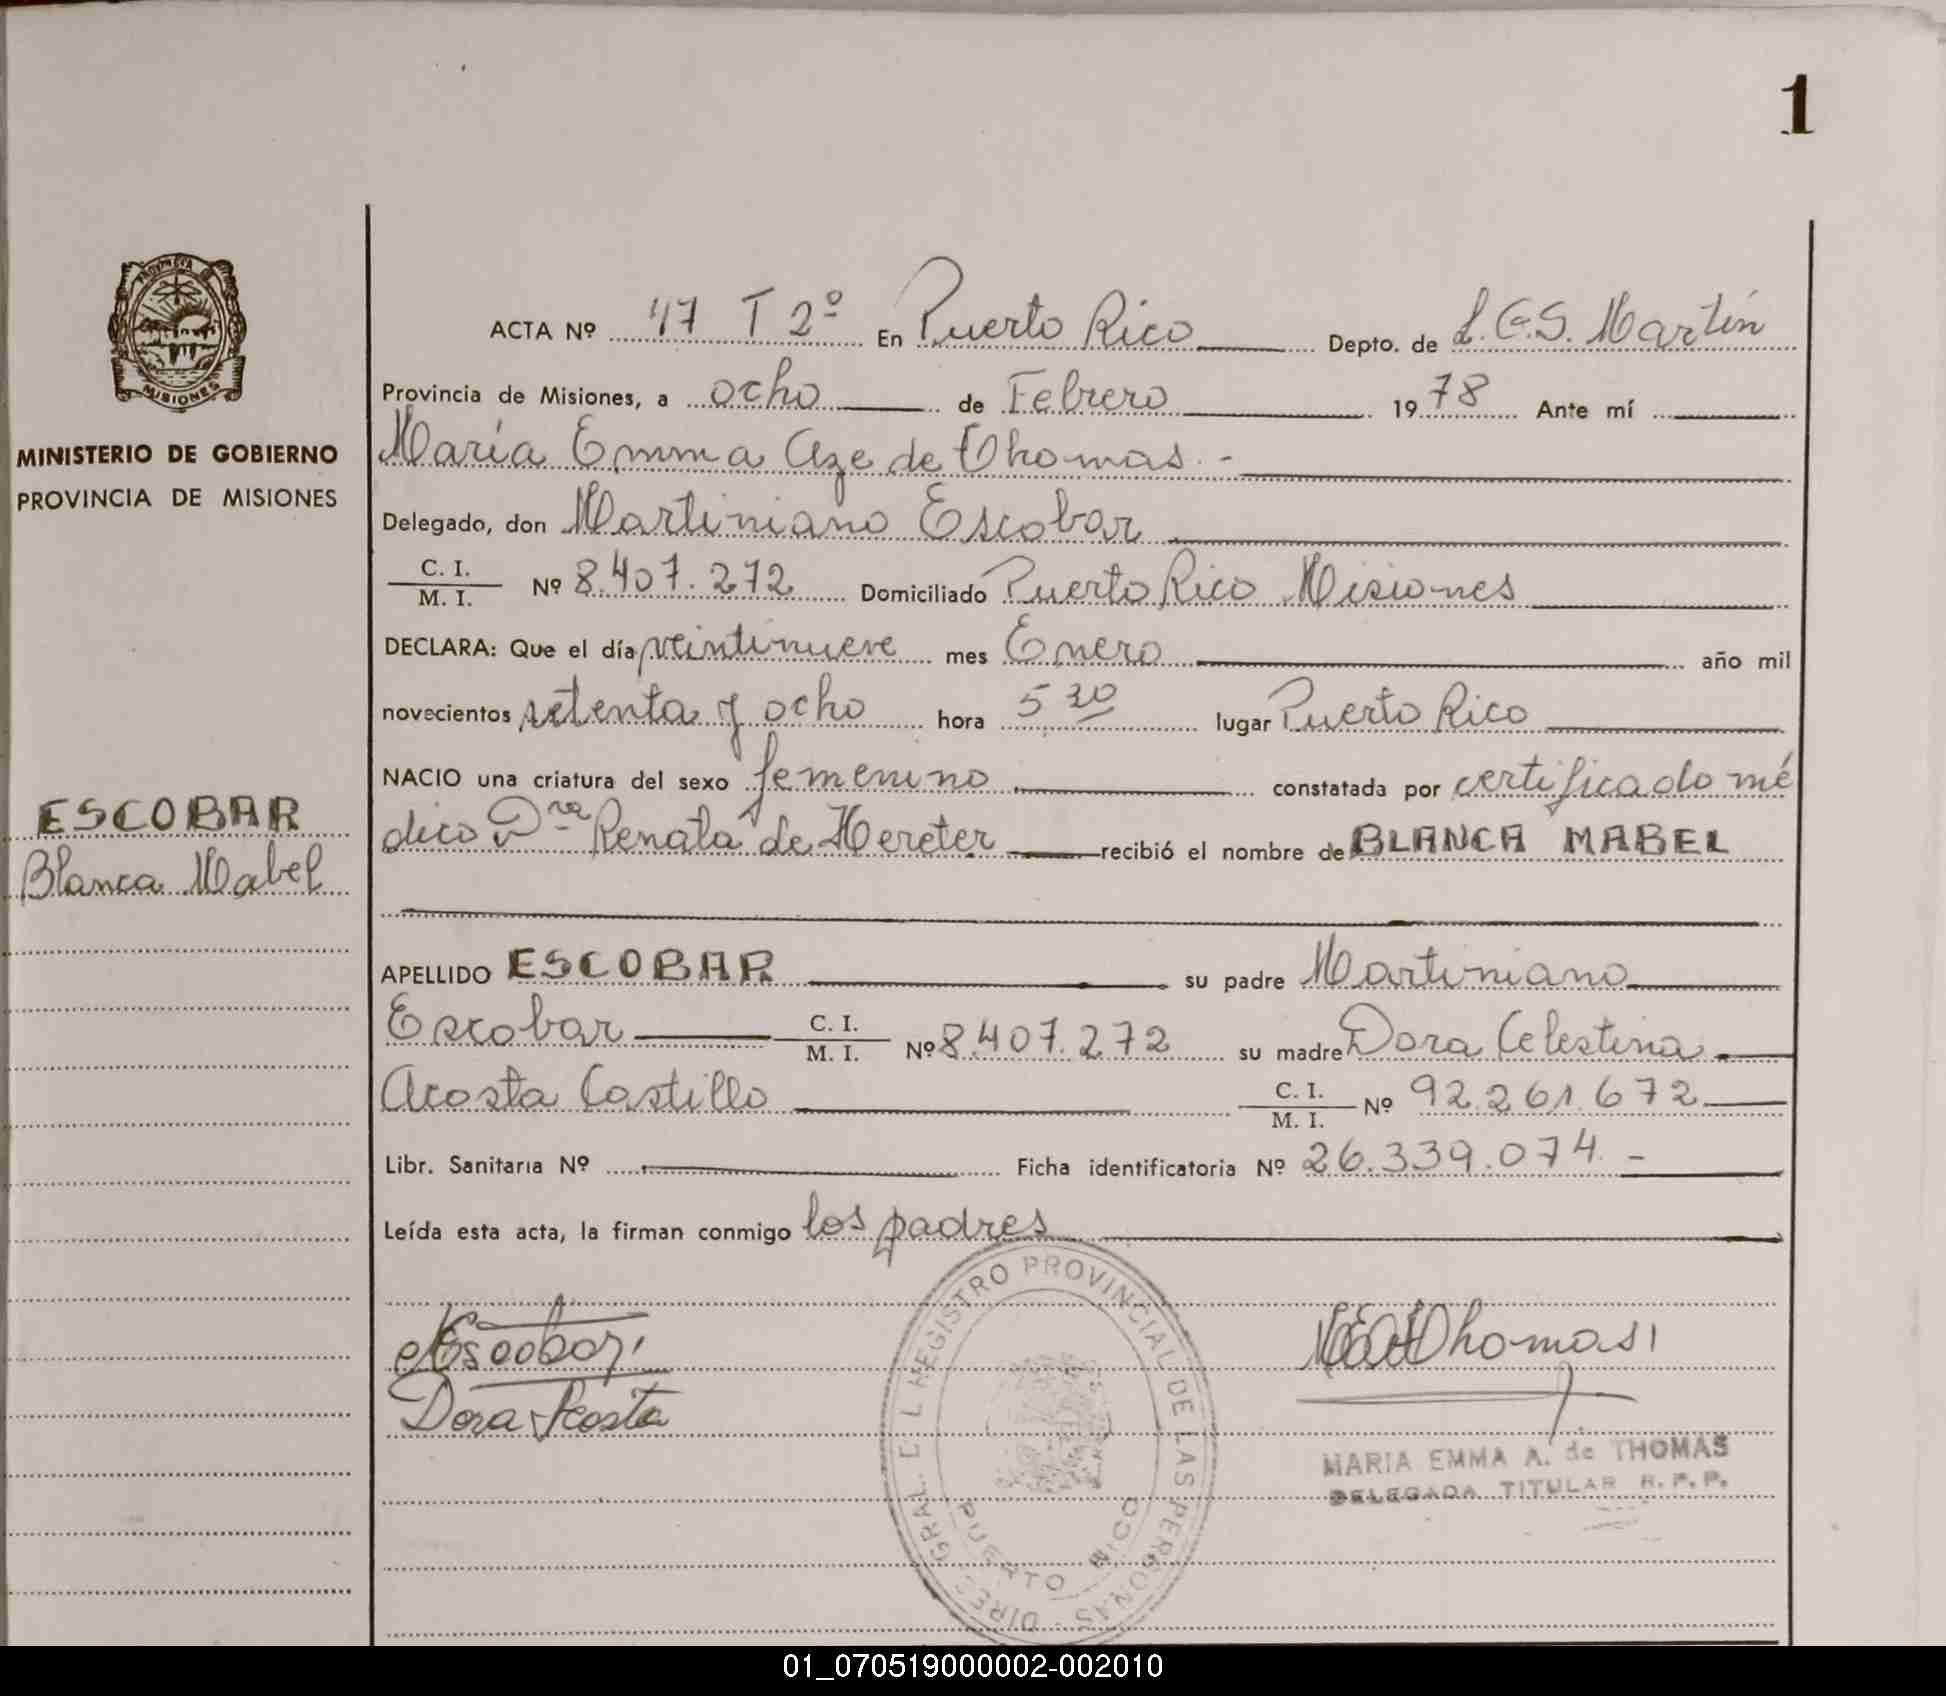 1
PROVINCIA
MISIONES
MINISTERIO DE GOBIERNO
PROVINCIA DE MISIONES
ESCOBAR
Blanca Mabel
ACTA Nº 47 T 2º En Puerto Rico Depto. de L.G.S. Martín
Provincia de Misiones, a ocho de Febrero 1978 Ante mí
María Emma Aze de Thomas.-
Delegado, don Martiniano Escobar
C. I.
M. I. Nº 8.407.272 Domiciliado Puerto Rico Misiones
DECLARA: Que el día veintinueve mes Enero año mil
novecientos setenta y ocho hora 5 30 lugar Puerto Rico
NACIO una criatura del sexo femenino constatada por certificado mé
dico Dra Renata de Hereter recibió el nombre de BLANCA MABEL
APELLIDO ESCOBAR su padre Martiniano
Escobar C. I. M. I. Nº 8.407.272 su madre Dora Celestina
Acosta Castillo C. I. M. I. Nº 92.261.672
Libr. Sanitaria Nº Ficha identificatoria Nº 26.339.074.-
Leída esta acta, la firman conmigo los padres
Escobar
Dora Acosta
Thomas
DIREC. GRAL. DEL REGISTRO PROVINCIAL DE LAS PERSONAS
PUERTO RICO
MARIA EMMA A. de THOMAS
DELEGADA TITULAR R. P. P.
01_070519000002-002010